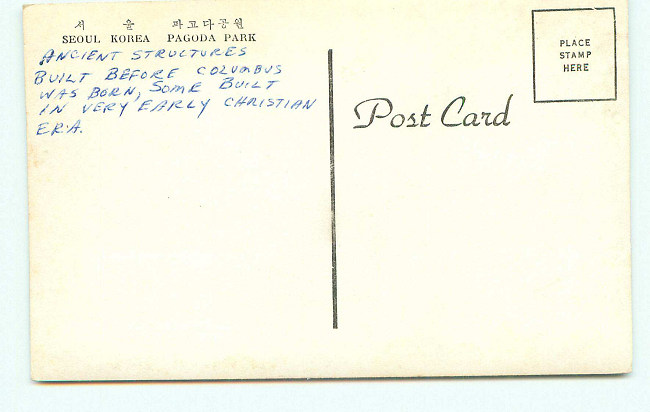 서 울 파고다공원
SEOUL KOREA PAGODA PARK
ANCIENT STRUCTURES
BUILT BEFORE COLUMBUS
WAS BORN, SOME BUILT
IN VERY EARLY CHRISTIAN
ERA.
Post Card
PLACE
STAMP
HERE